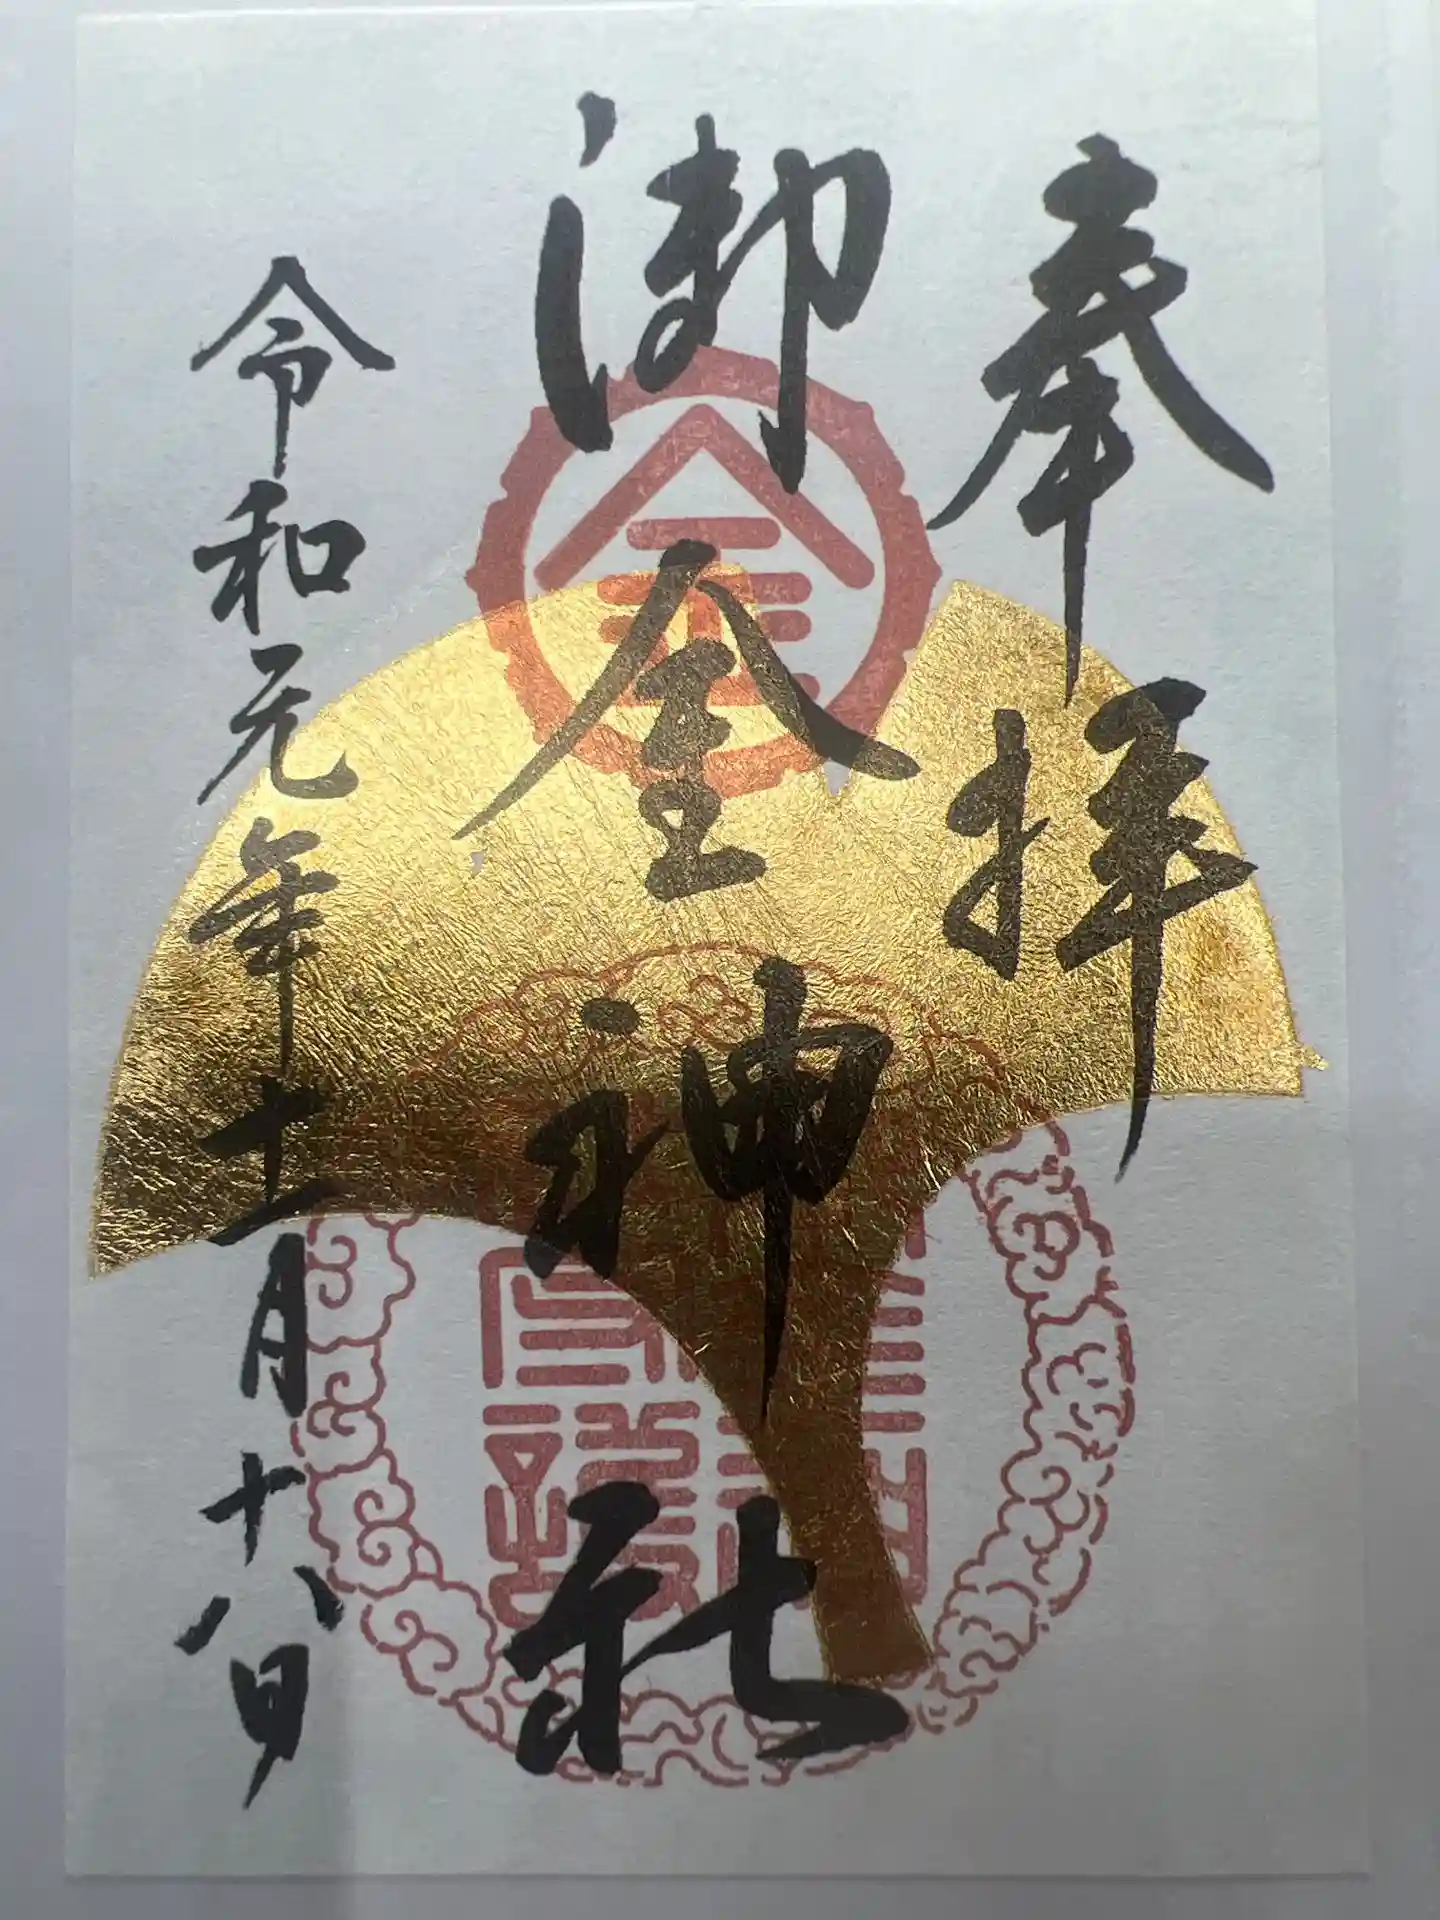 奉拝
御金神社
令和元年十一月十八日
金